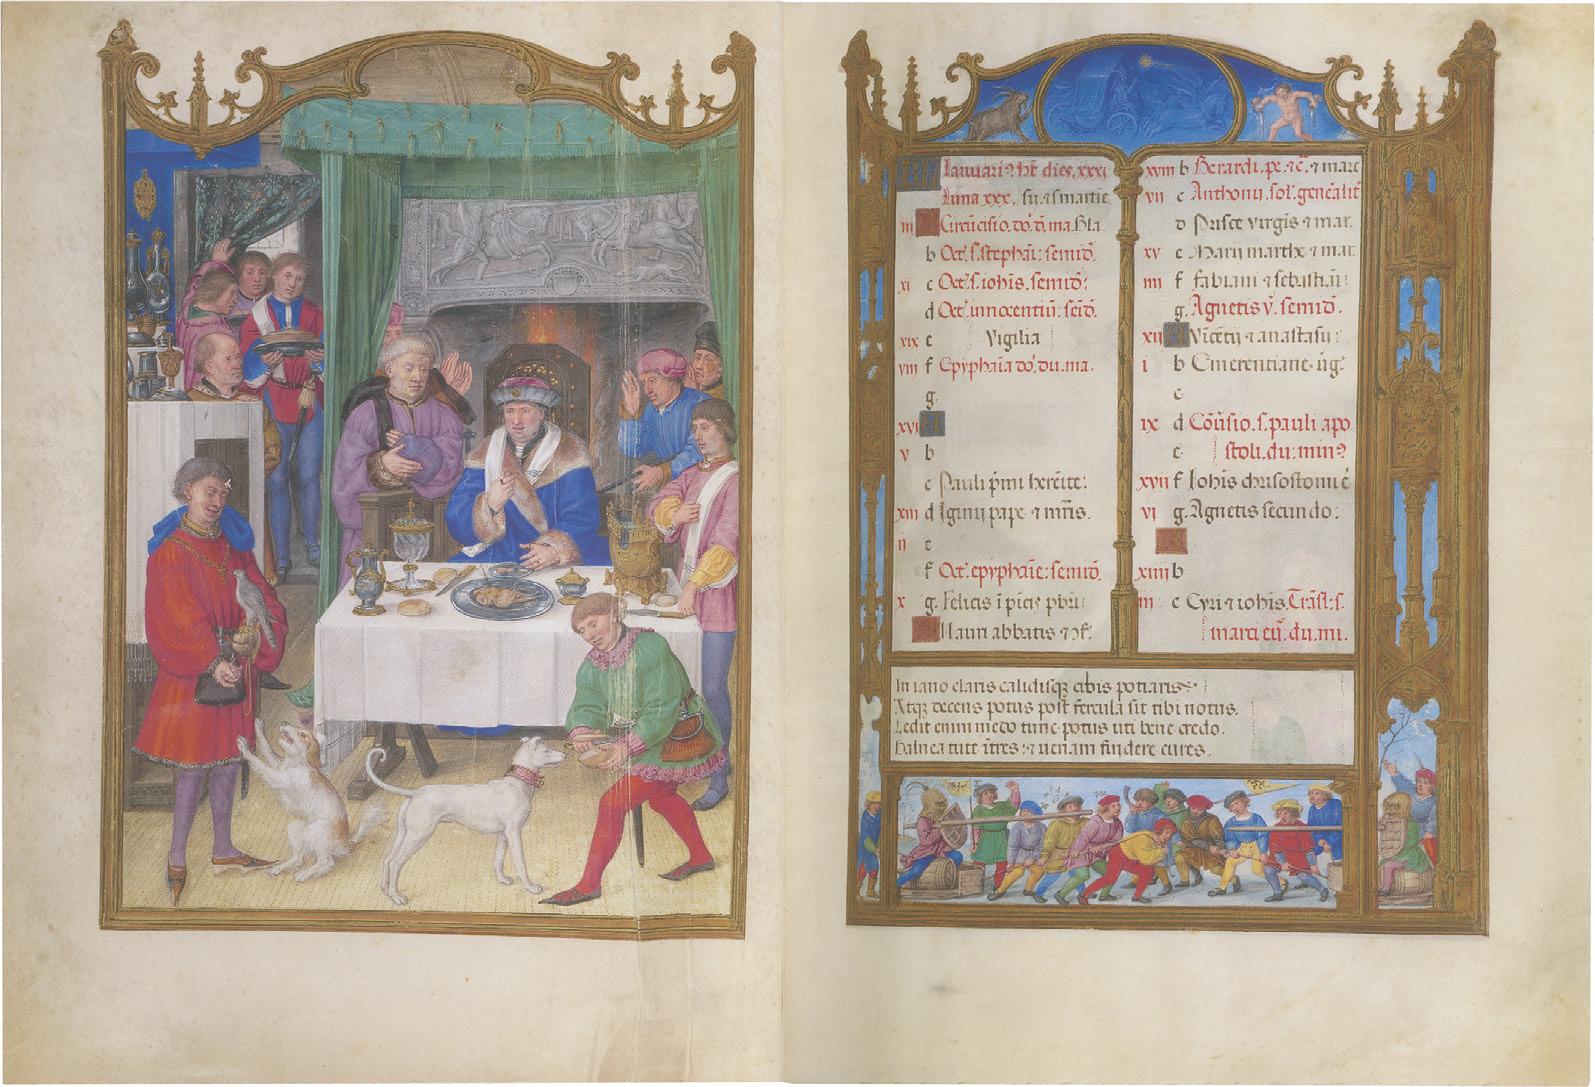 Januari9 ht dies. xxxi
Luna xxx.
iii Circūcisio. dō.
b Oct. s. stephāi: semid.
xi c Oct. s. iohis. semid.
d Oct. innocentiū: 
xix e Vigilia
viii f Epyphāia dō. du. ma.
g.
xvi
v b
c Pauli
xiii d Iginij pape
ii e
f Oct. epyphaīe: semid.
x g. Felicis ī picis pbri
Mauri abbatis
xviii b Berardi.
vii c Anthonij.
d Prisce virgis
xv e Marij marthe
iiii f fabiani sebastiāi
g. Agnetis v̄. semid.
xii Vicētij anastasij:
i b Emerentiane.
c
ix d Cōūsio. s. pauli apo
e stoli. du. min9
xvii f Iohis chrisostomi
vi g. Agnetis secundo:
xiiii b
iii c Cyri iohis. Trāsl: s.
marci
In iano claris calidisq cibis potiaris
Atq decens potus post fercula sit tibi notus.
Ledit enim medo tunc potus uti bene credo.
Balnea tute uenam findere cures.